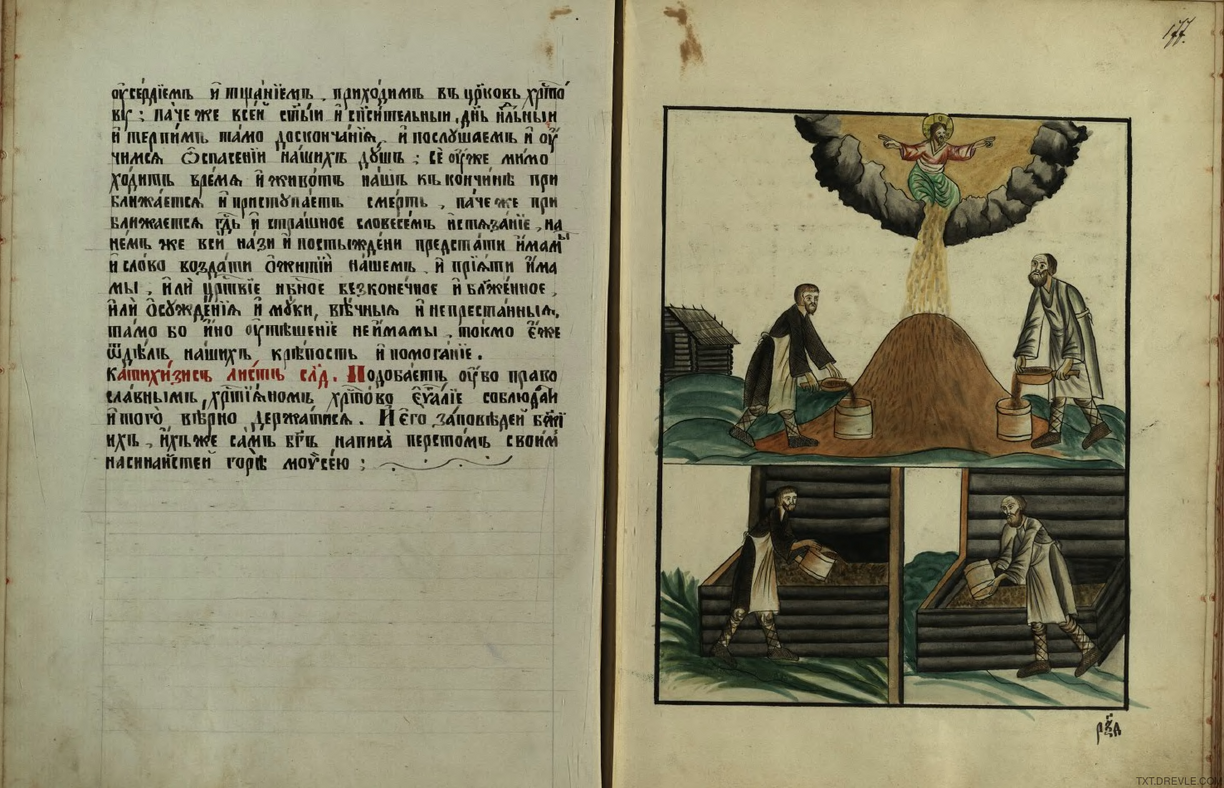 оу҆се́рдїемъ и҆ тща́нїемъ, прихо́димъ въ цр҃ковь хрⷭ҇то́
ву : па́че же всей ст҃ыи и҆ сп҃си́телныи, дн҃ь нл҃ьныи
и҆ те́рпимъ та́мо до сконча́нїѧ, и҆ послу́шаемъ и҆ оу҆
чимсѧ ѡ҆ спасе́нїи на́шихъ ду́шъ : се́ оу҆́же мимо
хо́дитъ вре́мѧ и҆ живо́тъ нашъ къ кончи́нѣ при
ближа́етсѧ и҆ приступа́етъ сме́рть, па́че же при
ближа́етсѧ гдⷭ҇ь и҆ стра́шное словесе́мъ истѧза́нїе, на
не́мъ же вси на́зи и҆ постыжде́ни предста́ти и҆́мамы
и҆ сло́во возда́ти ѡ҆ жи́тїй на́шемъ, и҆ прїѧ́ти и҆́ма
мы, и҆лѝ црⷭ҇твїе нбⷭ҇ное безконе́чное и҆ блаже́нное,
и҆лѝ ѡ҆сужде́нїѧ и҆ му́ки, вѣ́чныѧ и҆ непреста́нныѧ,
та́мо бо и҆́но оу҆тѣше́нїе не и҆́мамы, то́кмо є҆́же
ѿ дѣ́лъ на́шихъ крѣ́пость и҆ помога́нїе.
Катихи́зисъ ли́стъ сл҃д. Подоба́етъ оу҆́бо право
сла́внымъ, хрⷭ҇тїѧ́номъ хрⷭ҇то́во є҆ѵⷢ҇а́лїе соблюда́ти
и҆ того̀ вѣ́рно держа́тисѧ. И҆ є҆го̀ за́повѣдей бж҃їи
ихъ, и҆́хъже са́мъ бг҃ъ написа̀ персто́мъ свои́мъ
на сина́йстей горѣ̀ моѷсе́ю :
177.
рѯ҃а
TXT.DREVLE.COM